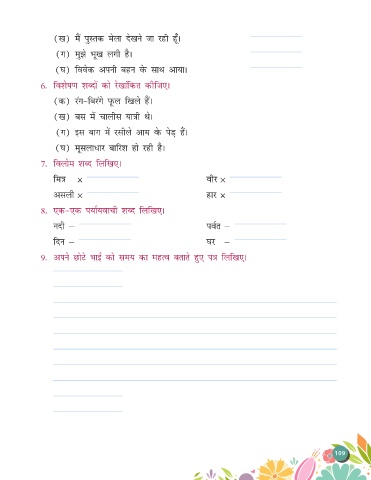 (ख) मैं पुस्तक मेला देखने जा रही हूँ।
(ग) मुझे भूख लगी है।
(घ) विवेक अपनी बहन के साथ आया।
6. विशेषण शब्दों को रेखांकित कीजिए।
(क) रंग-बिरंगे फूल खिले हैं।
(ख) बस में चालीस यात्री थे।
(ग) इस बाग में रसीले आम के पेड़ हैं।
(घ) मूसलाधार बारिश हो रही है।
7. विलोम शब्द लिखिए।
मित्र × वीर ×
असली × हार ×
8. एक-एक पर्यायवाची शब्द लिखिए।
नदी – पर्वत –
दिन – घर –
9. अपने छोटे भाई को समय का महत्व बताते हुए पत्र लिखिए।
109